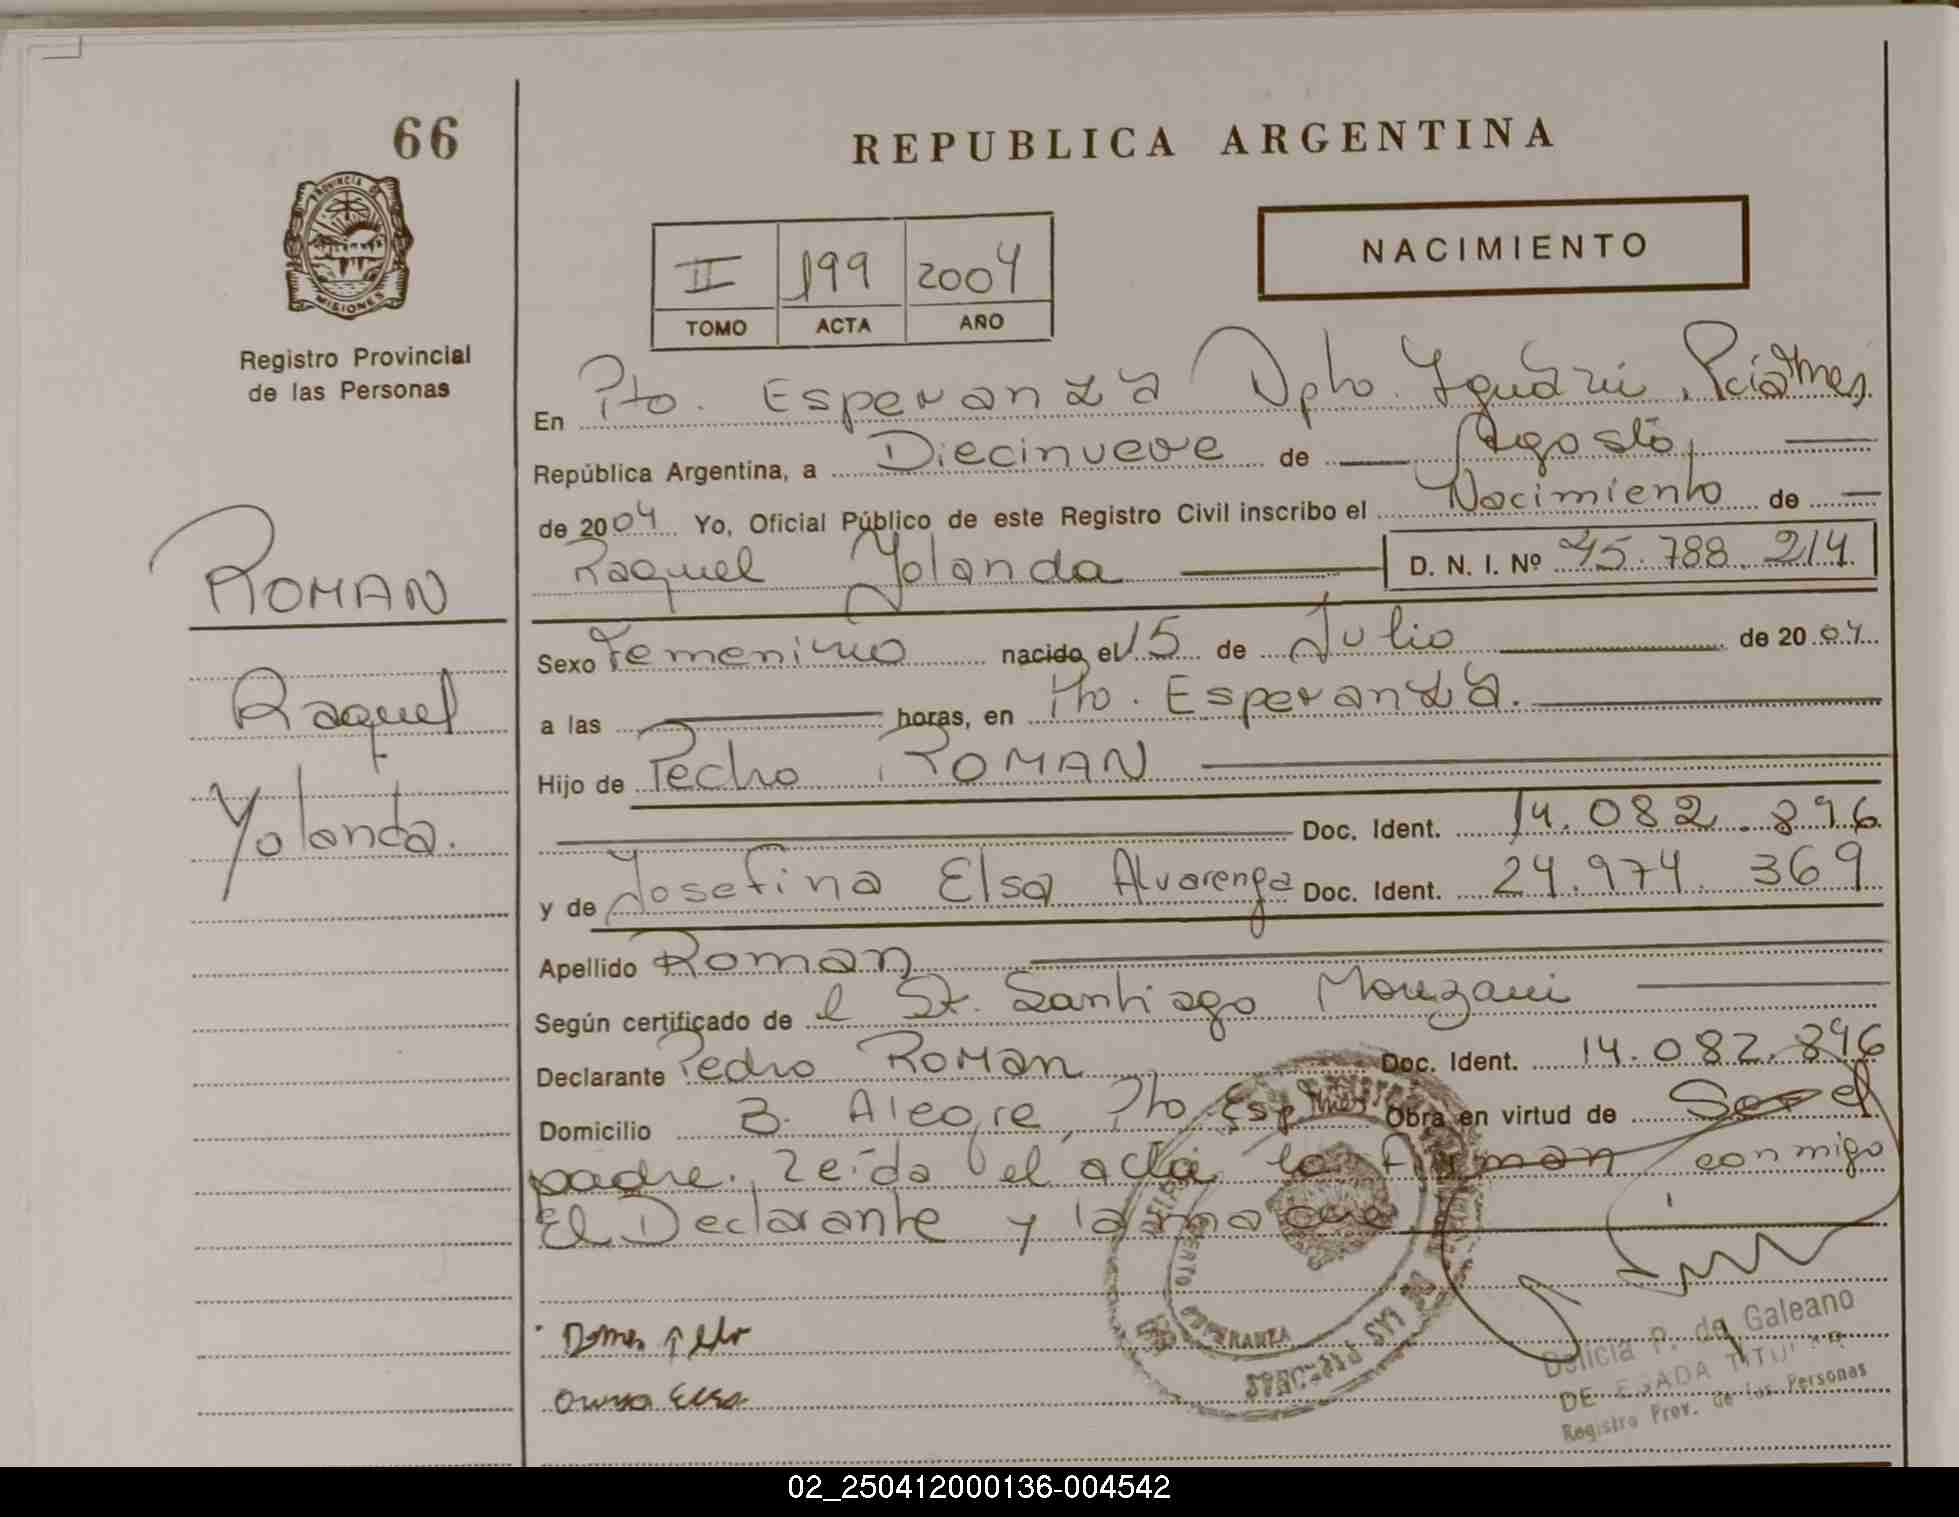 66
REPUBLICA ARGENTINA
PROVINCIA DE
MISIONES
Registro Provincial
de las Personas
II 199 2004
TOMO ACTA AÑO
NACIMIENTO
En Pto. Esperanza Dpto. Iguazú, Pcia Mnes,
República Argentina, a Diecinueve de Agosto,
de 2004 Yo, Oficial Público de este Registro Civil inscribo el Nacimiento de
Raquel Yolanda D. N. I. Nº 45.788.214
ROMAN
Raquel
Yolanda.
Sexo Femenino nacido el 15 de Julio de 2004
a las horas, en Pto. Esperanza.
Hijo de Pedro ROMAN
Doc. Ident. 14.082.896
y de Josefina Elsa Alvarenga Doc. Ident. 24.974.369
Apellido Roman
Según certificado de el Dr. Santiago
Declarante Pedro ROMAN Doc. Ident. 14.082.896
Domicilio B. Alegre, Pto. Esp. Mnes Obra en virtud de Ser el
padre. Leída el acta la Firman conmigo
El Declarante y la madre
PUERTO ESPERANZA
Delicia P. de Galeano
DELEGADA TITULAR
Registro Prov. de las Personas
02_250412000136-004542